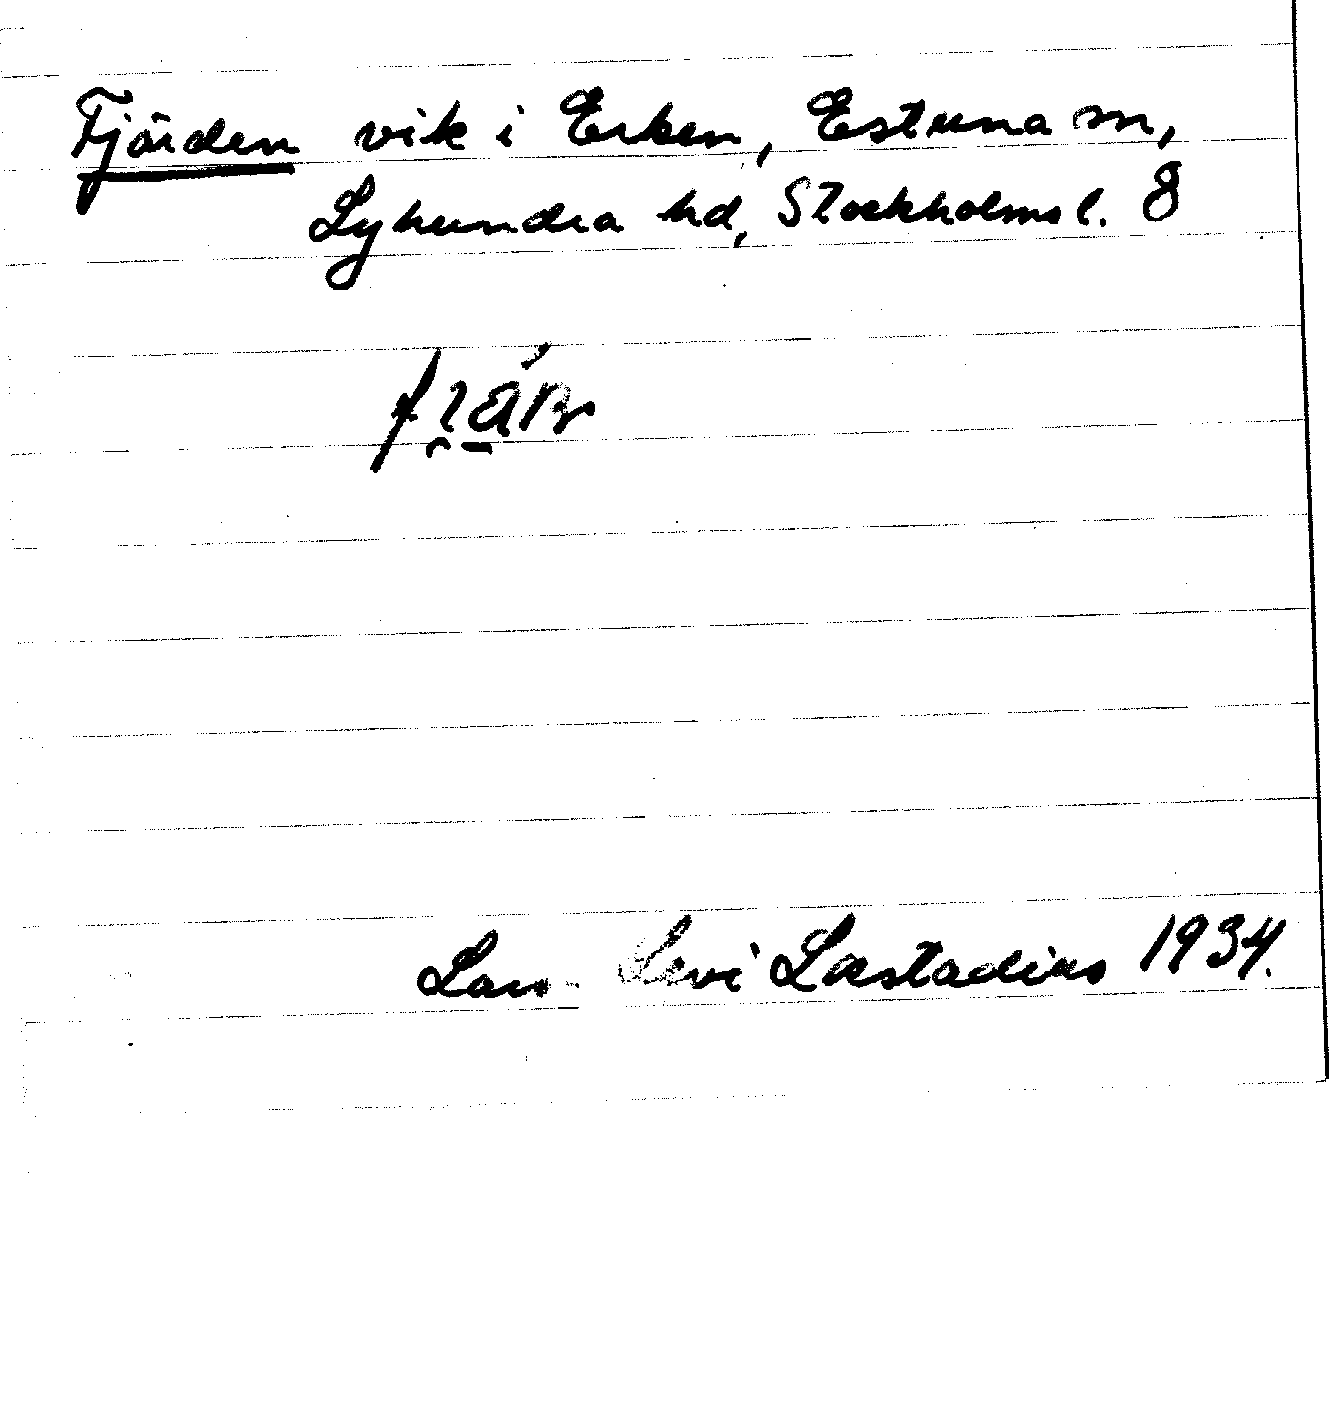 Fjärden vik i Erken, Estuna sn,
Lyhundra hd, Stockholms l. 8
Lars Levi Læstadius 1934.